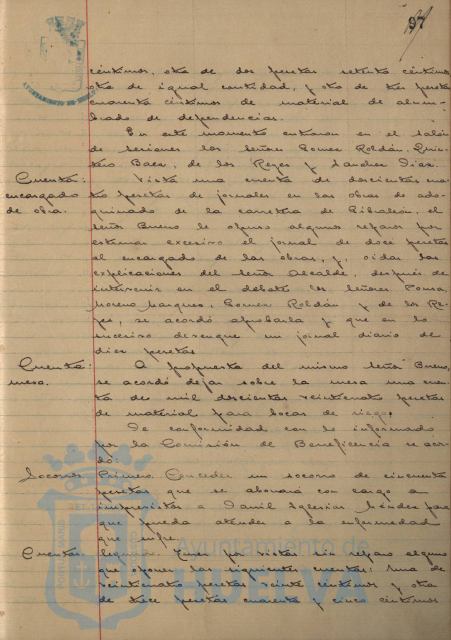 97
céntimos, otra de dos pesetas setenta céntimos
otra de igual cantidad, y otra de tres pesetas
cuarenta céntimos de material de alum-
brado de dependencias.
En este momento entraron en el salón
de sesiones los señores Gomez Roldán, Quin-
tero Baez, de los Reyes y Sanchez Diaz.
Cuenta: Vista una cuenta de doscientas cua-
encargado tro pesetas de jornales en las obras de ado-
de obra. quinado de la carretera de Gibraleón, el
señor Bueno le opuso algunos reparos por
estimar excesivo el jornal de doce pesetas
al encargado de las obras, y, oidas las
explicaciones del señor Alcalde, después de
intervenir en el debate los señores Ponsa,
Moreno Marquez, Gomez Roldán y de los Re-
yes, se acordó aprobarla y que en lo
sucesivo devengue un jornal diario de
diez pesetas.
Cuenta: A propuesta del mismo señor Bueno,
mesa. se acordó dejar sobre la mesa una cuen-
ta de mil doscientas veinticuatro pesetas
de material para bocas de riego.
De conformidad con lo informado
por la Comisión de Beneficencia se acor-
dó:
Socorro. Primero. Conceder un socorro de cincuenta
pesetas que se abonará con cargo a
imprevistos a Iglesias Méndez para
que pueda atender a la enfermedad
que sufre.
Cuentas. Segundo. por vistas sin reparo alguno
que oponer las siguientes cuentas: una de
veinticuatro pesetas veinte céntimos y otra
de trece pesetas cuarenta y cinco céntimos
Ayuntamiento de
HUELVA